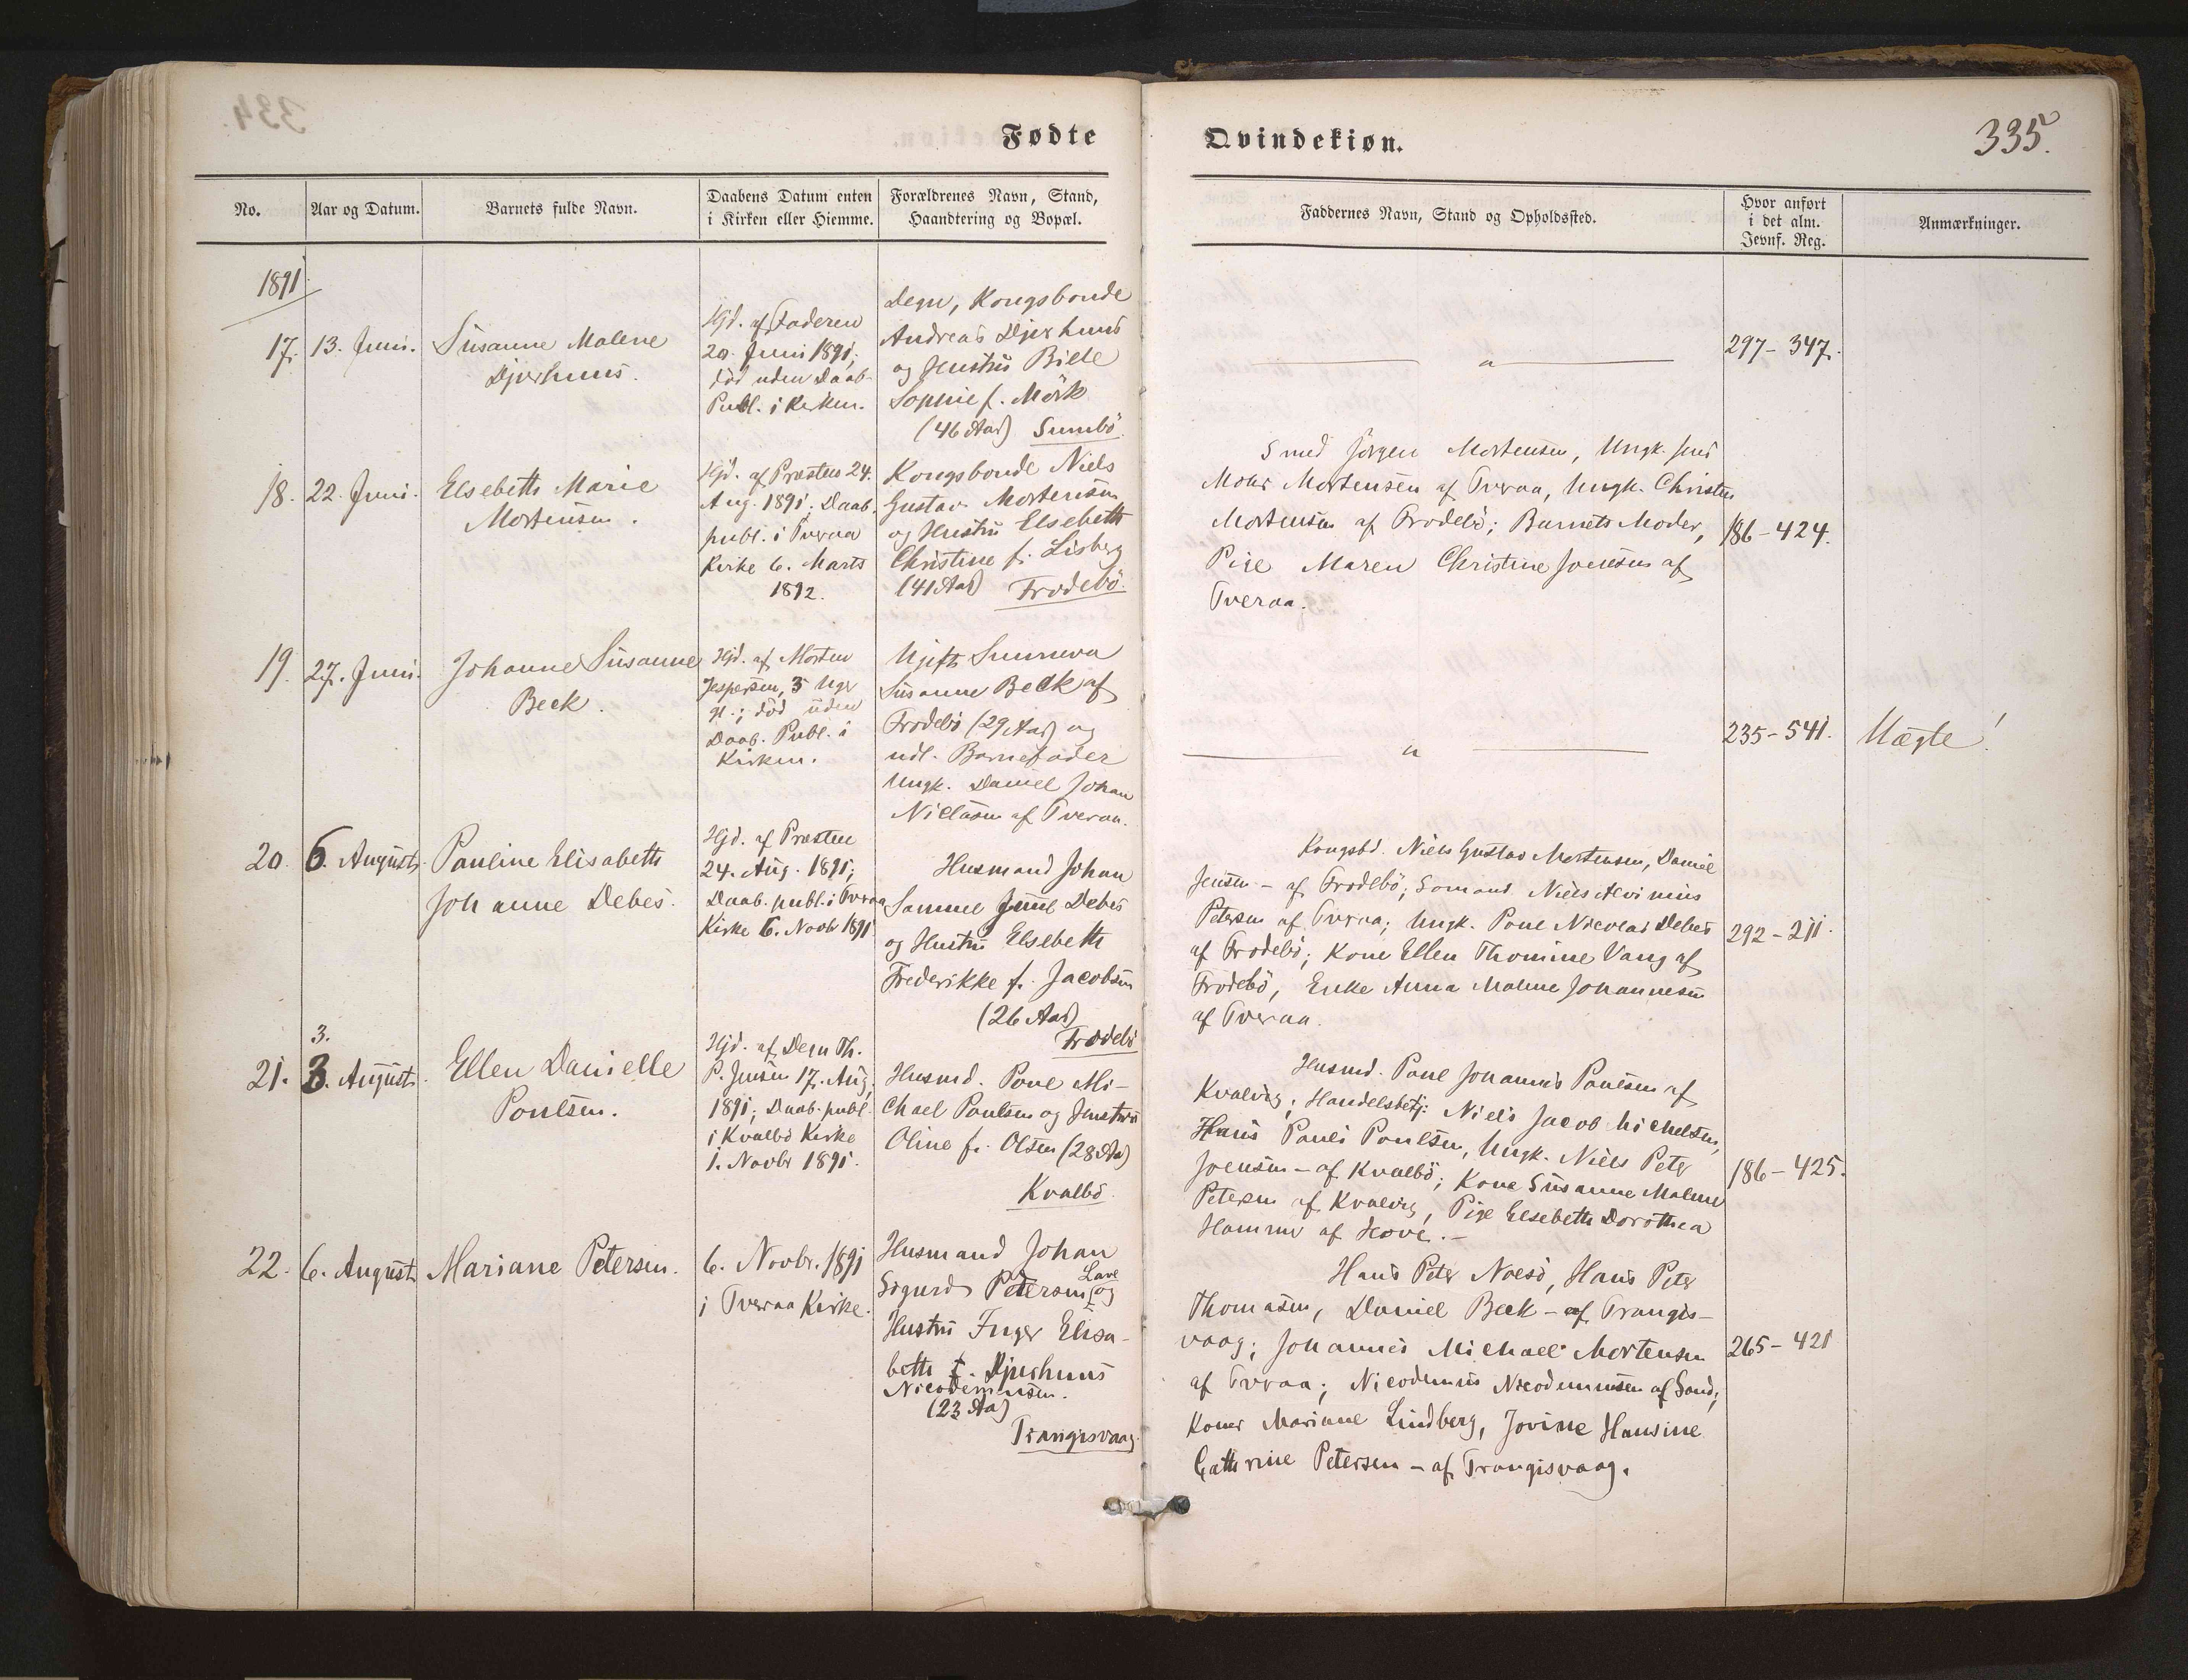 334.
Fødte
Qvindekiøn.
335.
No.
Aar og Datum.
Barnets fulde Navn.
Daabens Datum enten
i Kirken eller Hiemme.
Forældrenes Navn, Stand,
Haandtering og Bopæl.
Faddernes Navn, Stand og Opholdssted.
Hvor anført
i det alm.
Jevnf. Reg.
Anmærkninger.
1891
17.
13. Juni.
Susanne Malene
Djurhuus.
Hjd. af Faderen
20. Juni 1891;
död uden Daab-
Publ. i Kirken.
Degn, Kongsbonde
Andreas Djurhuus
og Hustru Bille
Sophie f. Mörk
(46 Aar) Sumbö.
"
297-347.
18.
22. Juni.
Elsebeth Marie
Mortensen.
Hjd. af Præsten 24.
Aug. 1891; Daab.
publ. i Tveraa
Kirke 6. Marts
1892.
Kongsbonde Niels
Gustav Mortensen
og Hustru Elsebeth
Christine f. Lisberg
(41 Aar) Frodebö.
Smed Jörgen Mortensen, Ungk. Jens
Mohr Mortensen af Tveraa, Ungk. Christen
Mortensen af Frodebö; Barnets Moder,
Pige Maren Christine Joensen af
Tveraa.
186-424.
19.
27. Juni.
Johanne Susanne
Beck.
Hjd. af Morten
Jespersen, 3 Uger
gl.; död uden
Daab. Publ. i
Kirken.
Ugift Sunneva
Susanne Beck af
Frodebö (29 Aar) og
udl. Barnefader
Ungk. Daniel Johan
Nielsen af Tveraa.
"
235-541.
Uægte!
20.
6. August.
Pauline Elisabeth
Johanne Debes.
Hjd. af Præsten
24. Aug. 1891;
Daab. publ. i Tveraa
Kirke 6. Novb 1891
Husmand Johan
Samuel Juul Debes
og Hustru Elsebeth
Frederikke f. Jacobsen
(26 Aar)
Frodebö
Kongsbd. Niels Gustav Mortensen, Daniel
Jensen - af Frodebö; Sömand Niels
Petersen af Tveraa; Ungk. Poul Nicolai Debes
af Frodebö; Kone Ellen Thomine Vang af
Frodebö, Enke Anna Malene Johannesen
af Tveraa.
292-211.
3.
21.
3. August.
Ellen Danielle
Poulsen.
Hjd. af Degn Th.
P. Jensen 17. Aug.
1891; Daab. publ.
i Kvalbö Kirke
1. Novbr 1891.
Husmd. Poul Mi-
chael Poulsen og Hustru
Oline f. Olsen (28 Aar)
Kvalbö.
Husmd. Poul Johannes Poulsen af
Kvalvig; Handelsbetj: Niels Jacob Michelsen,
Hans Pauli Poulsen, Ungk. Niels Peter
Joensen - af Kvalbö; Kone Susanne Malene
Petersen af Kvalvig, Pige Elsebeth Dorothea
Hammer af Hove.-
186-425.
22.
6. August
Mariane Petersen.
6. Novbr. 1891
i Tveraa Kirke.
Husmand Johan
Lave
Sigurd Petersen og
Hustru Inger Elisa-
beth f. Djurhuus
Nicodemusen.
(23 Aar)
Trangisvaag.
Hans Peter Nolsö, Hans Peter
Thomasen, Daniel Beck - af Trangis-
vaag; Johannes Michael Mortensen
af Tveraa; Nicodemus Nicodemusen af Sand;
Koner Mariane Lindberg, Jovine Hansine
Cathrine Petersen - af Trangisvaag.
265-421